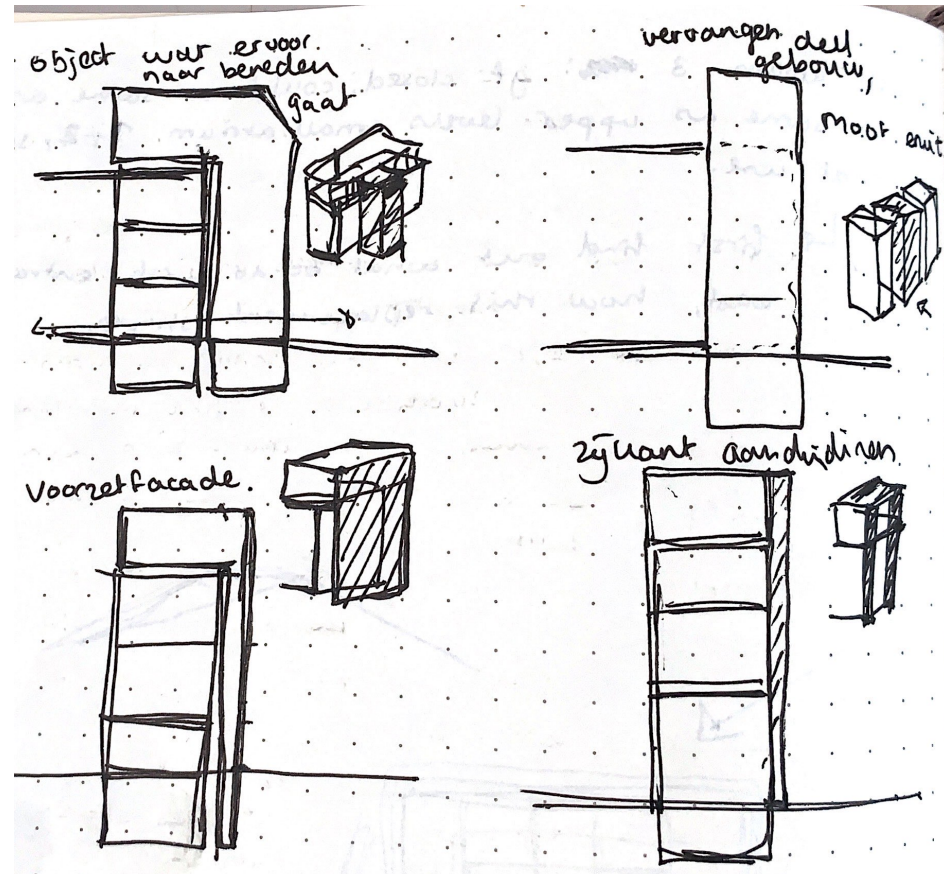 object wat ervoor
naar beneden
gaat
vervangen deel
gebouw,
moot eruit
voorzetfacade.
zijkant aandiktiken